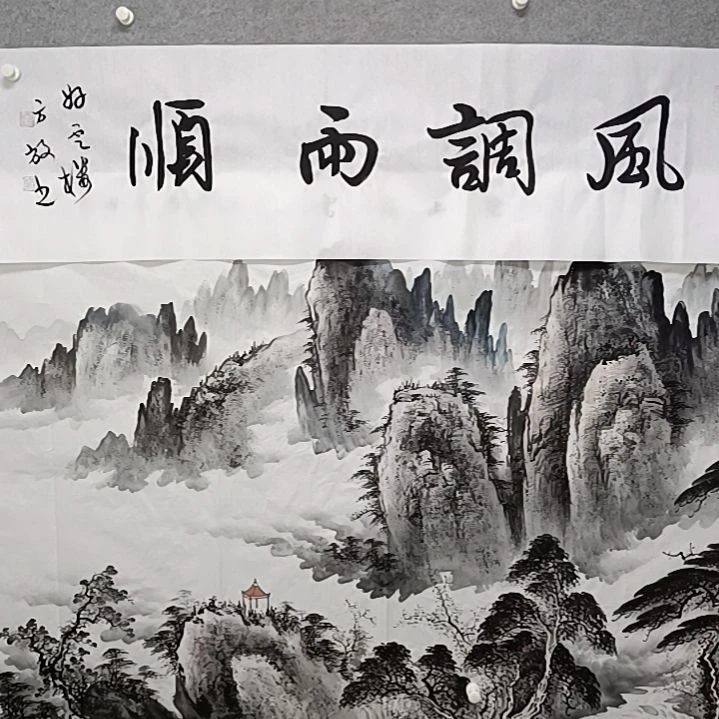 風調雨順
好雲樓
方放书